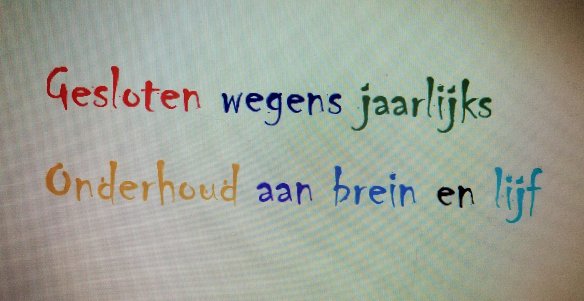 Gesloten wegens jaarlijks
Onderhoud aan brein en lijf